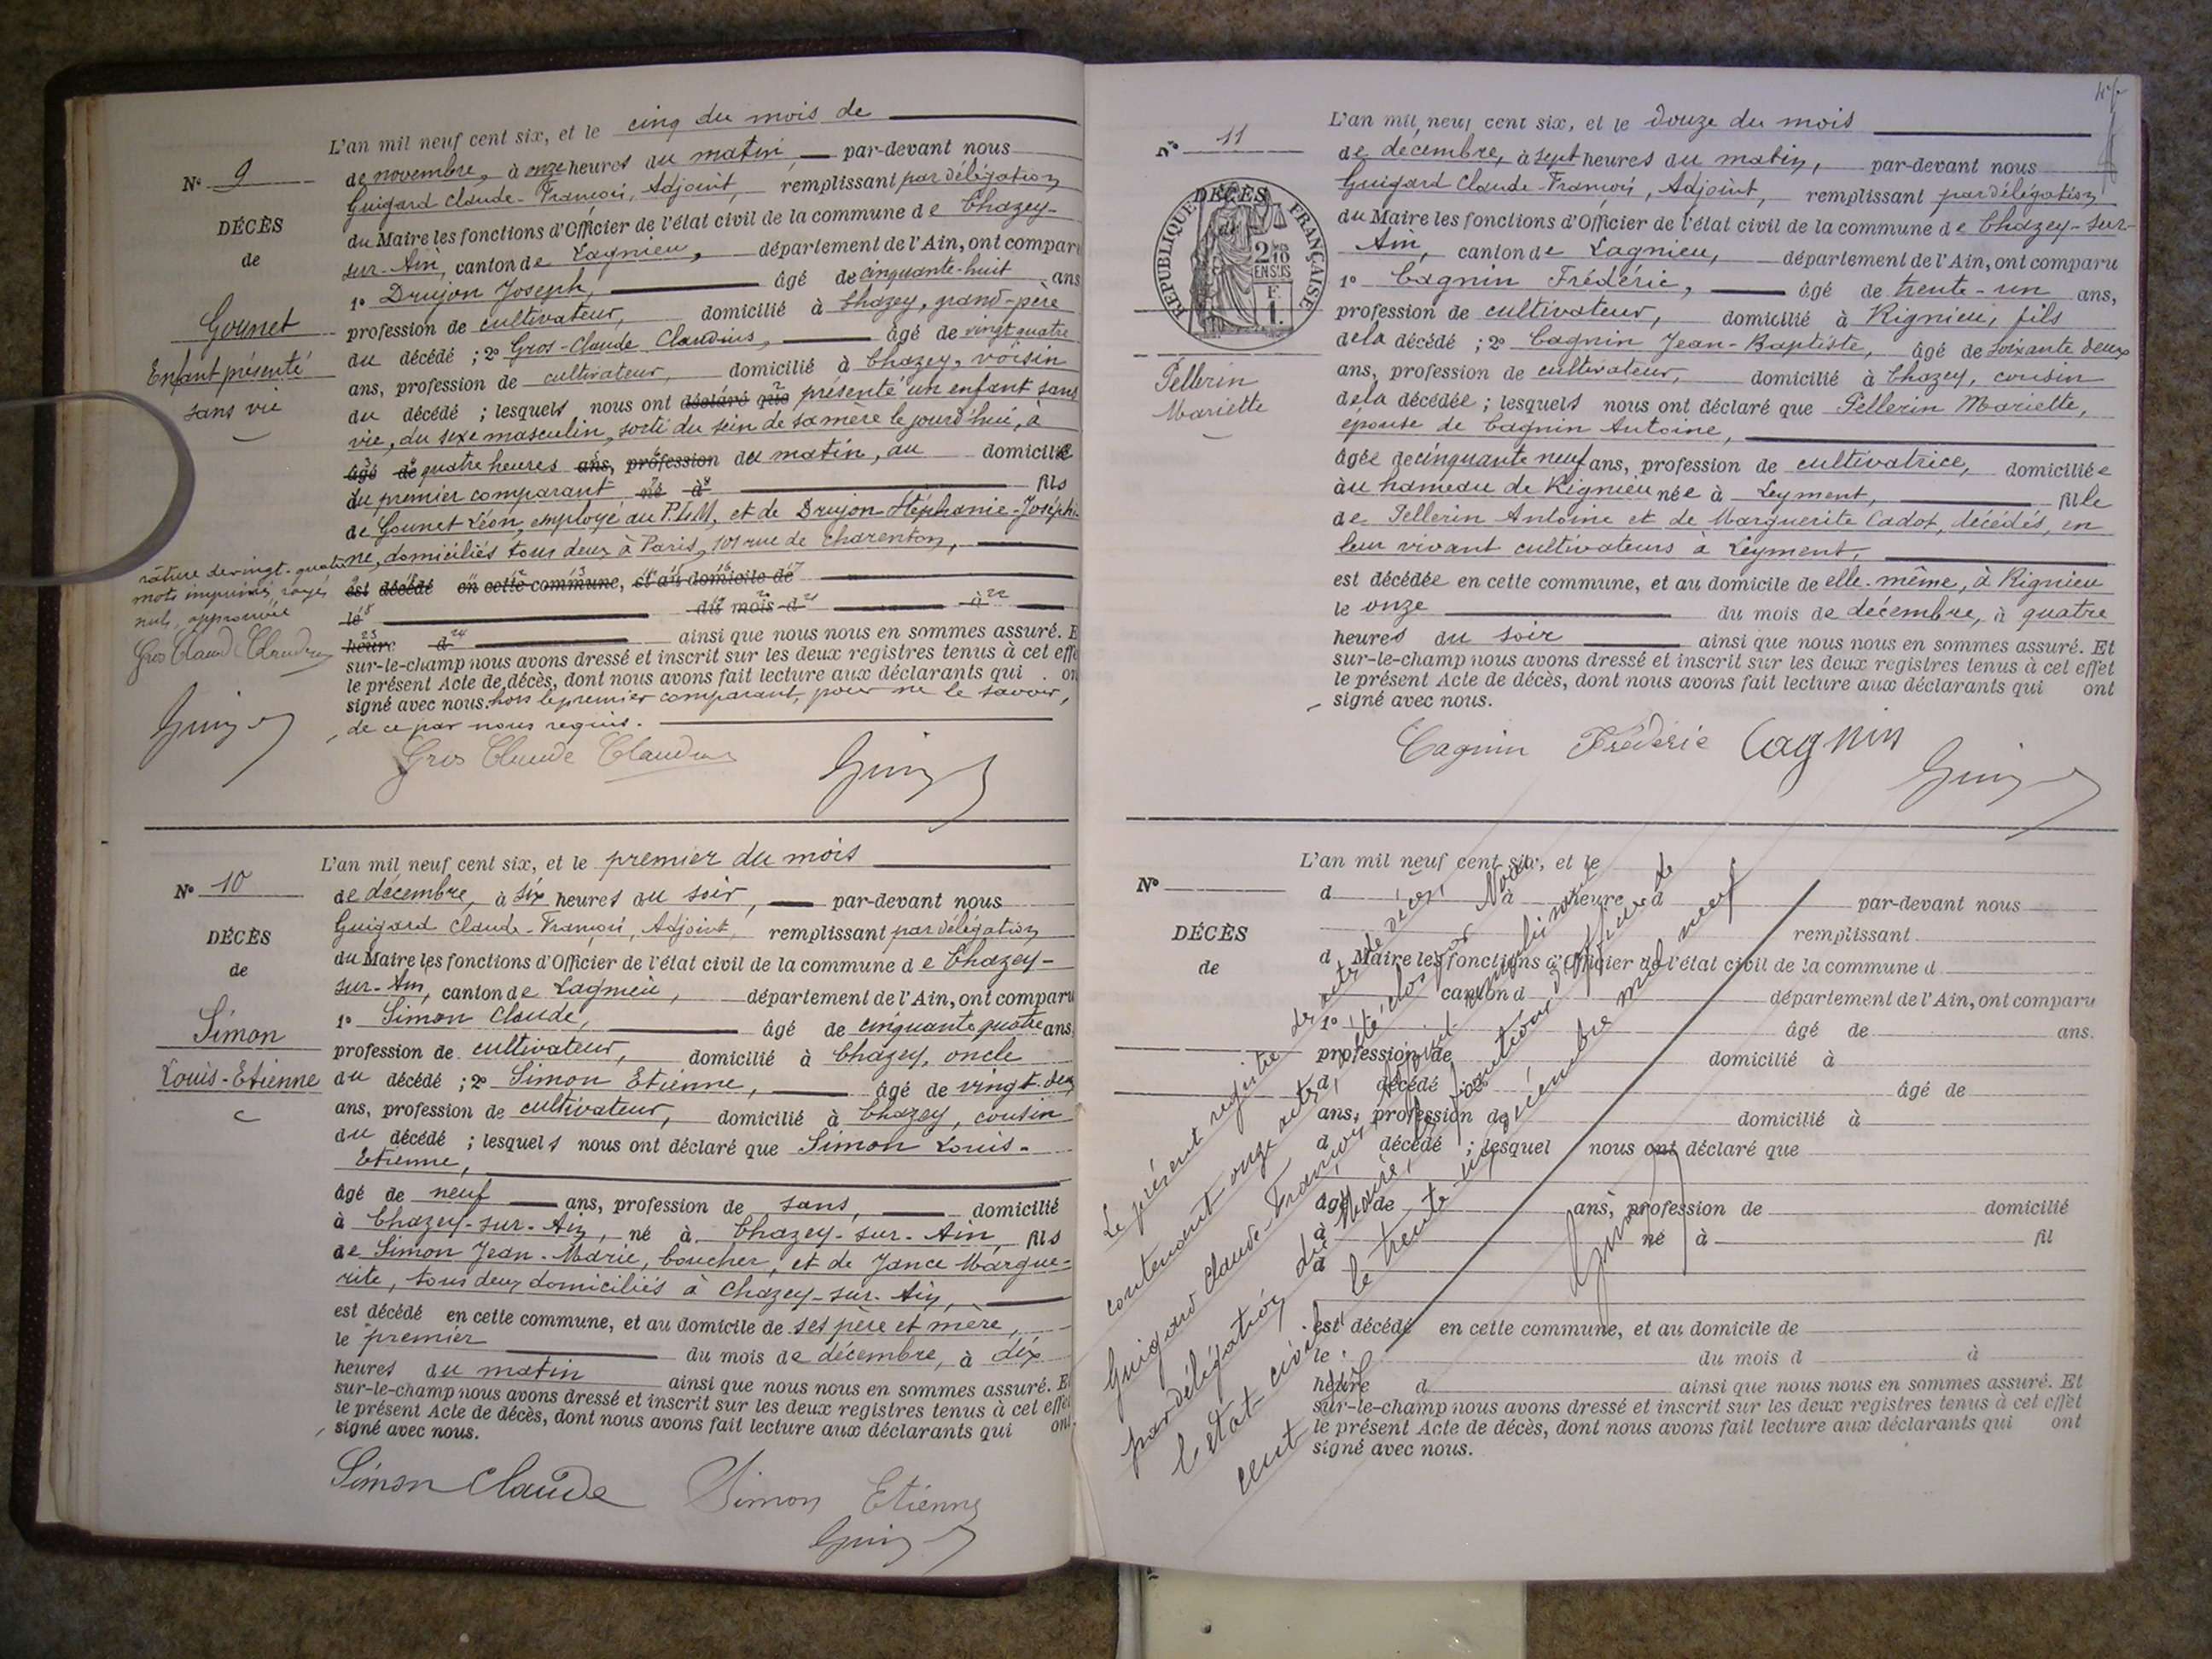 L'an mil neuf cent six, et le cinq du mois de
Nº 9
de novembre, à onze heures du matin, par-devant nous
Guigard Claude-François, Adjoint, remplissant par délégation
DÉCÈS
du Maire les fonctions d'Officier de l'état civil de la commune de Chazey-
de
sur-Ain, canton de Lagnieu, département de l'Ain, ont comparu
1º Drujon Joseph, âgé de cinquante-huit ans
Gounet
profession de cultivateur, domicilié à Chazey, grand-père
Enfant présenté
du décédé ; 2º Gros-Claude Claudius, âgé de vingt quatre
sans vie
ans, profession de cultivateur, domicilié à Chazey, voisin
du décédé ; lesquels nous ont déclaré que présenté un enfant sans
vie, du sexe masculin, sorti du sein de sa mère le jourd'hui, à
âgé de quatre heures ans, profession du matin, au domicile
du premier comparant né à fils
de Gounet Léon, employé au P.L.M, et de Drujon Stéphanie-Joséphi-
ne, domiciliés tous deux à Paris, 101 rue de Charenton,
rature de vingt-quatre
mots imprimés rayés
nuls, approuvée
Gros Claude Claudius
est décédé en cette commune, et au domicile de
le du mois d à
heure d ainsi que nous nous en sommes assuré. E
sur-le-champ nous avons dressé et inscrit sur les deux registres tenus à cet effe
le présent Acte de décès, dont nous avons fait lecture aux déclarants qui on
signé avec nous. hors le premier comparant, pour ne le savoir,
de ce par nous requis.
Gros Claude Claudius
L'an mil neuf cent six, et le premier du mois
Nº 10
de décembre, à six heures du soir, par-devant nous
Guigard Claude-François, Adjoint, remplissant par délégation
DÉCÈS
du Maire les fonctions d'Officier de l'état civil de la commune de Chazey-
de
sur-Ain, canton de Lagnieu, département de l'Ain, ont comparu
Simon
1º Simon Claude, âgé de cinquante quatre ans,
profession de cultivateur, domicilié à Chazey, oncle
Louis-Etienne
du décédé ; 2º Simon Etienne, âgé de vingt-deux
ans, profession de cultivateur, domicilié à Chazey, cousin
du décédé ; lesquels nous ont déclaré que Simon Louis-
Etienne,
âgé de neuf ans, profession de sans, domicilié
à Chazey-sur-Ain, né à Chazey-sur-Ain, fils
de Simon Jean-Marie, boucher, et de Jance Margue-
rite, tous deux domiciliés à Chazey-sur-Ain,
est décédé en cette commune, et au domicile de ses père et mère,
le premier du mois de décembre, à dix
heures du matin ainsi que nous nous en sommes assuré. E
sur-le-champ nous avons dressé et inscrit sur les deux registres tenus à cet effet
le présent Acte de décès, dont nous avons fait lecture aux déclarants qui ont
signé avec nous.
Simon Claude Simon Etienne
L'an mil neuf cent six, et le douze du mois
Nº 11
de décembre, à sept heures du matin, par-devant nous
Guigard Claude-François, Adjoint, remplissant par délégation
DÉCÈS
de
RÉPUBLIQUE FRANÇAISE
2/10 EN SUS
F. 1.
du Maire les fonctions d'Officier de l'état civil de la commune de Chazey-sur-
Ain, canton de Lagnieu, département de l'Ain, ont comparu
1º Cagnin Frédéric, âgé de trente-un ans,
profession de cultivateur, domicilié à Rignieu, fils
de la décédé ; 2º Cagnin Jean-Baptiste, âgé de soixante deux
Pellerin
Mariette
ans, profession de cultivateur, domicilié à Chazey, cousin
de la décédée ; lesquels nous ont déclaré que Pellerin Mariette,
épouse de Cagnin Antoine,
âgée de cinquante neuf ans, profession de cultivatrice, domiciliée
à au hameau de Rignieu née à Leyment, fille
de Pellerin Antoine et de Marguerite Cadot, décédés, en
leur vivant cultivateurs à Leyment,
est décédée en cette commune, et au domicile de elle-même, à Rignieu
le onze du mois de décembre, à quatre
heures du soir ainsi que nous nous en sommes assuré. Et
sur-le-champ nous avons dressé et inscrit sur les deux registres tenus à cet effet
le présent Acte de décès, dont nous avons fait lecture aux déclarants qui ont
signé avec nous.
Cagnin Frédéric Cagnin
L'an mil neuf cent six, et le
Nº
d à heure d par-devant nous
remplissant
DÉCÈS
d Maire les fonctions d'Officier de l'état civil de la commune d
de
canton d département de l'Ain, ont comparu
1º âgé de ans.
profession de domicilié à
d décédé ; 2º âgé de
ans, profession de domicilié à
d décédé ; lesquel nous ont déclaré que
âgé de ans, profession de domicilié
à né à fil
d
est décédé en cette commune, et au domicile de
le du mois d à
heure d ainsi que nous nous en sommes assuré. Et
sur-le-champ nous avons dressé et inscrit sur les deux registres tenus à cet effet
le présent Acte de décès, dont nous avons fait lecture aux déclarants qui ont
signé avec nous.
Le présent registre des actes de décès,
contenant onze actes, a été clos par Nous
Guigard Claude-François, Adjoint remplissant
par délégation du Maire, les fonctions d'officier de
l'état civil, le trente un décembre mil neuf
cent six.